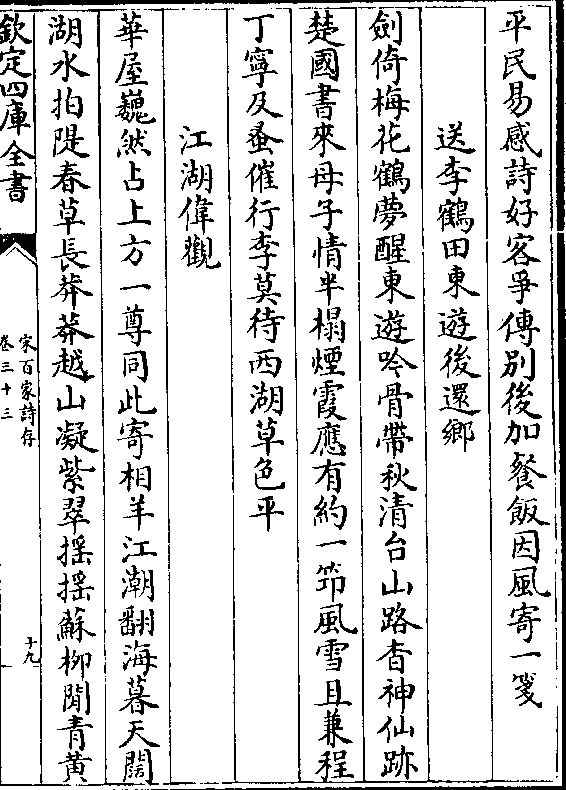 平民易感詩好客爭傳別後加餐飯因風寄一箋
送李鶴田東遊後還鄉
劍倚梅花鶴夢醒東遊吟骨帶秋清台山路杳神仙跡
楚國書來母子情半榻煙霞應有約一笻風雪且兼程
丁寧及蚤催行李莫待西湖草色平
江湖偉觀
華屋巍然占上方一尊同此寄相羊江潮翻海暮天闊
湖水拍隄春草長莽莽越山凝紫翠揺揺蘇柳閒青黃
欽定四庫全書
宋百家詩存
卷三十三
十九